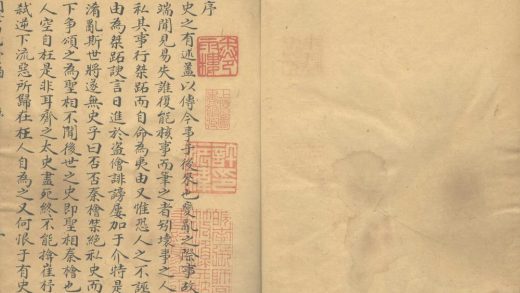 序
史之有述蓋以傳今事于後來也變亂之際事故
端聞見易失誰復能核事而筆之者矧壞事之人
私其事行桀跖而自命為夷由又惟恐人之不
由為桀跖諛言日進於盜誹謗屢加于介特是
淆亂斯世將遂無史子曰否否秦檜禁絕私史而
下爭頌之為聖相不聞後世之史即聖相秦檜也
人空自枉是非耳齊之太史盡死終不能揜崔杼
弒逆下流惡所歸在枉人自為之又何恨于有史